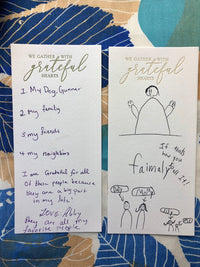 WE GATHER WITH
grateful
HEARTS
1. My Dog, Gunner
2. my family
3 my friends
4 my neighbors
I am Grateful for all
of these people because
they are a big part
in my life!
Love, Abby
they are all my
favorite people
WE GATHER WITH
grateful
HEARTS
It
how you
faimaly